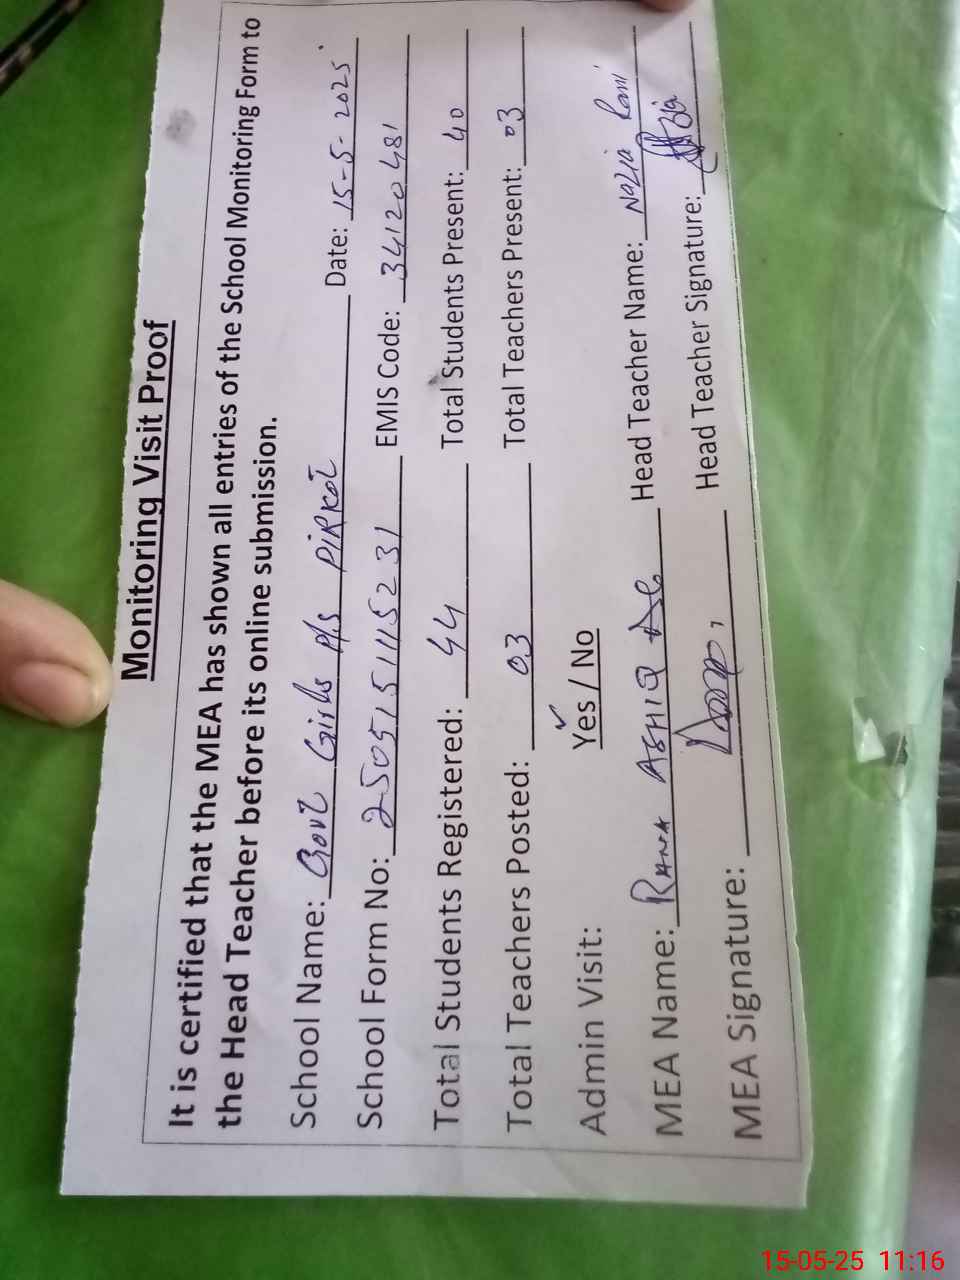 Monitoring Visit Proof
It is certified that the MEA has shown all entries of the School Monitoring Form to
the Head Teacher before its online submission.
School Name: Govt Girls P/S PIRKOT Date: 15-5-2025
School Form No: 2505151115231 EMIS Code: 34120481
Total Students Registered: 44 Total Students Present: 40
Total Teachers Posted: 03 Total Teachers Present: 03
Admin Visit: Yes / No
MEA Name: RANA ASHIQ Head Teacher Name: Nazia Rani
MEA Signature: Head Teacher Signature:
15-05-25 11:16